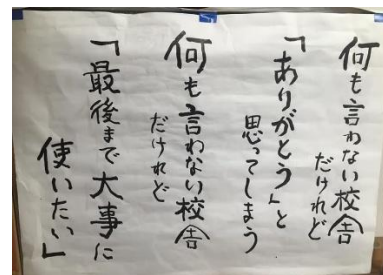 何も言わない校舎
だけれど
「ありがとう」と
思ってしまう
何も言わない校舎
だけれど
「最後まで大事に
使いたい」